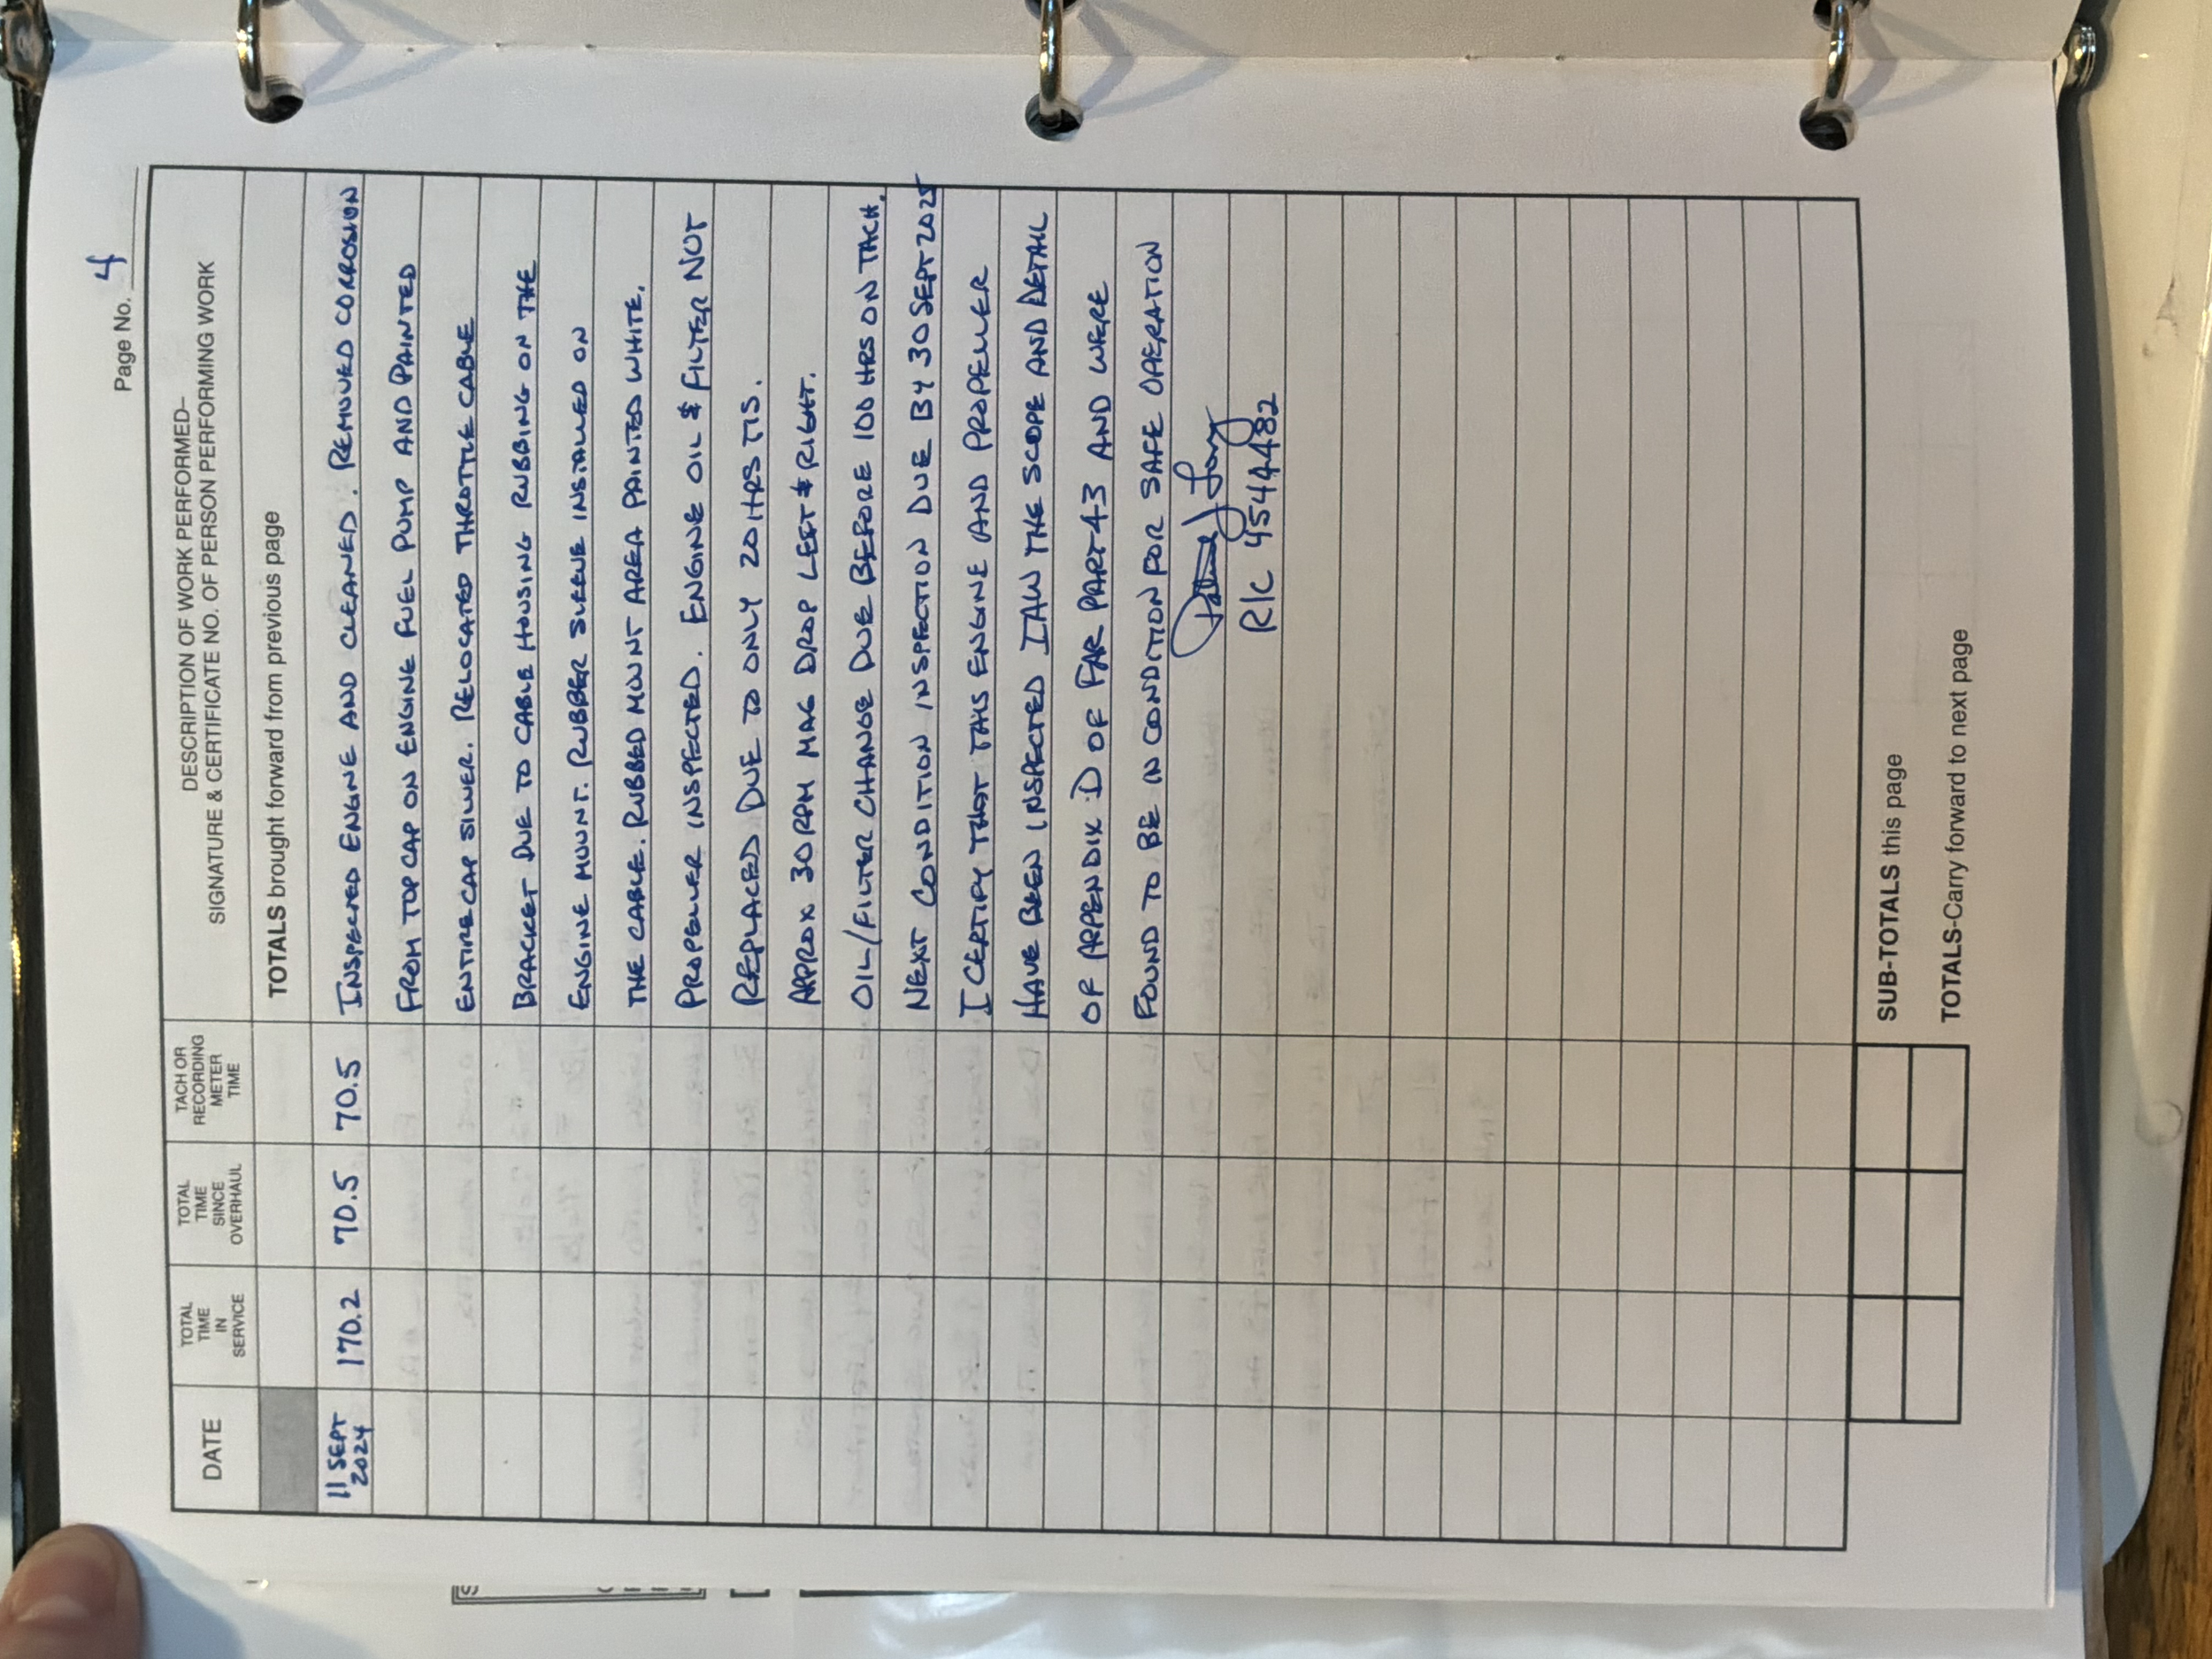 Page No. 4
DATE
TOTAL TIME IN SERVICE
TOTAL TIME SINCE OVERHAUL
TACH OR RECORDING METER TIME
DESCRIPTION OF WORK PERFORMED–
SIGNATURE & CERTIFICATE NO. OF PERSON PERFORMING WORK
TOTALS brought forward from previous page
11 SEPT 2024 170.2 70.5 70.5 INSPECTED ENGINE AND CLEANED. REMOVED CORROSION
FROM TOP CAP ON ENGINE FUEL PUMP AND PAINTED
ENTIRE CAP SILVER. RELOCATED THROTTLE CABLE
BRACKET DUE TO CABLE HOUSING RUBBING ON THE
ENGINE MOUNT. RUBBER SLEEVE INSTALLED ON
THE CABLE. RUBBED MOUNT AREA PAINTED WHITE.
PROPELLER INSPECTED. ENGINE OIL & FILTER NOT
REPLACED DUE TO ONLY 20 HRS TIS.
APPROX 30 RPM MAG DROP LEFT & RIGHT.
OIL/FILTER CHANGE DUE BEFORE 100 HRS ON TACH.
NEXT CONDITION INSPECTION DUE BY 30 SEPT 2025
I CERTIFY THAT THIS ENGINE AND PROPELLER
HAVE BEEN INSPECTED IAW THE SCOPE AND DETAIL
OF APPENDIX D OF FAR PART 43 AND WERE
FOUND TO BE IN CONDITION FOR SAFE OPERATION
R/C 4544482
SUB-TOTALS this page
TOTALS-Carry forward to next page